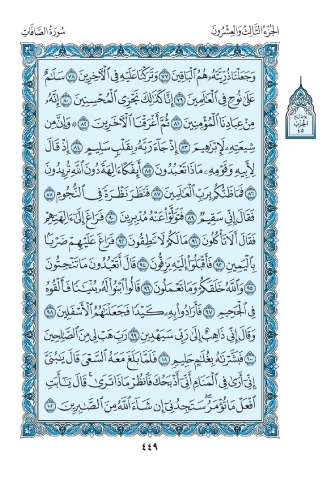 الجزء الثالث والعشرون
سورة الصافات
وَجَعَلْنَا ذُرِّيَّتَهُۥ هُمُ ٱلْبَاقِينَ ٧٧ وَتَرَكْنَا عَلَيْهِ فِى ٱلْءَاخِرِينَ ٧٨ سَلَٰمٌ
عَلَىٰ نُوحٍ فِى ٱلْعَٰلَمِينَ ٧٩ إِنَّا كَذَٰلِكَ نَجْزِى ٱلْمُحْسِنِينَ ٨٠ إِنَّهُۥ
مِنْ عِبَادِنَا ٱلْمُؤْمِنِينَ ٨١ ثُمَّ أَغْرَقْنَا ٱلْءَاخَرِينَ ٨٢ ۞ وَإِنَّ مِن
شِيعَتِهِۦ لَإِبْرَٰهِيمَ ٨٣ إِذْ جَآءَ رَبَّهُۥ بِقَلْبٍ سَلِيمٍ ٨٤ إِذْ قَالَ
لِأَبِيهِ وَقَوْمِهِۦ مَاذَا تَعْبُدُونَ ٨٥ أَئِفْكًا ءَالِهَةً دُونَ ٱللَّهِ تُرِيدُونَ
٨٦ فَمَا ظَنُّكُم بِرَبِّ ٱلْعَٰلَمِينَ ٨٧ فَنَظَرَ نَظْرَةً فِى ٱلنُّجُومِ ٨٨
فَقَالَ إِنِّى سَقِيمٌ ٨٩ فَتَوَلَّوْا۟ عَنْهُ مُدْبِرِينَ ٩٠ فَرَاغَ إِلَىٰٓ ءَالِهَتِهِمْ
فَقَالَ أَلَا تَأْكُلُونَ ٩١ مَا لَكُمْ لَا تَنطِقُونَ ٩٢ فَرَاغَ عَلَيْهِمْ ضَرْبًۢا
بِٱلْيَمِينِ ٩٣ فَأَقْبَلُوٓا۟ إِلَيْهِ يَزِفُّونَ ٩٤ قَالَ أَتَعْبُدُونَ مَا تَنْحِتُونَ
٩٥ وَٱللَّهُ خَلَقَكُمْ وَمَا تَعْمَلُونَ ٩٦ قَالُوا۟ ٱبْنُوا۟ لَهُۥ بُنْيَٰنًا فَأَلْقُوهُ
فِى ٱلْجَحِيمِ ٩٧ فَأَرَادُوا۟ بِهِۦ كَيْدًا فَجَعَلْنَٰهُمُ ٱلْأَسْفَلِينَ ٩٨
وَقَالَ إِنِّى ذَاهِبٌ إِلَىٰ رَبِّى سَيَهْدِينِ ٩٩ رَبِّ هَبْ لِى مِنَ ٱلصَّٰلِحِينَ
١٠٠ فَبَشَّرْنَٰهُ بِغُلَٰمٍ حَلِيمٍ ١٠١ فَلَمَّا بَلَغَ مَعَهُ ٱلسَّعْىَ قَالَ يَٰبُنَىَّ
إِنِّىٓ أَرَىٰ فِى ٱلْمَنَامِ أَنِّىٓ أَذْبَحُكَ فَٱنظُرْ مَاذَا تَرَىٰ ۚ قَالَ يَٰٓأَبَتِ
ٱفْعَلْ مَا تُؤْمَرُ ۖ سَتَجِدُنِىٓ إِن شَآءَ ٱللَّهُ مِنَ ٱلصَّٰبِرِينَ ١٠٢
الحزب
٤٥
٤٤٩